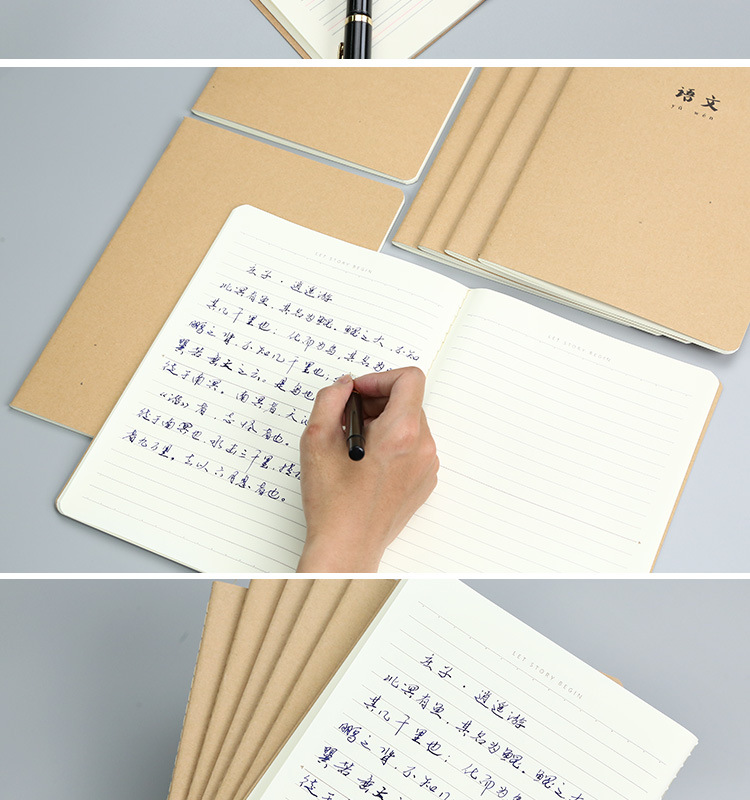 语文
yǔ wén
LET STORY BEGIN
LET STORY BEGIN
庄子·逍遥游
北冥有鱼，其名为鲲。鲲之大，不知
其几千里也；化而为鸟，其名为
鹏之背，不知几千里也；
翼若垂天之云。是鸟也
徙于南冥。南冥者，天池
《谐》者，志怪者也。
徙于南冥也，水击三千里，抟扶
者九万里。去以六月息者也。
LET STORY BEGIN
庄子·逍遥游
北冥有鱼，其名为鲲。鲲之大
其几千里也；化而为鸟
鹏之背，不知几
翼若垂天
徙于